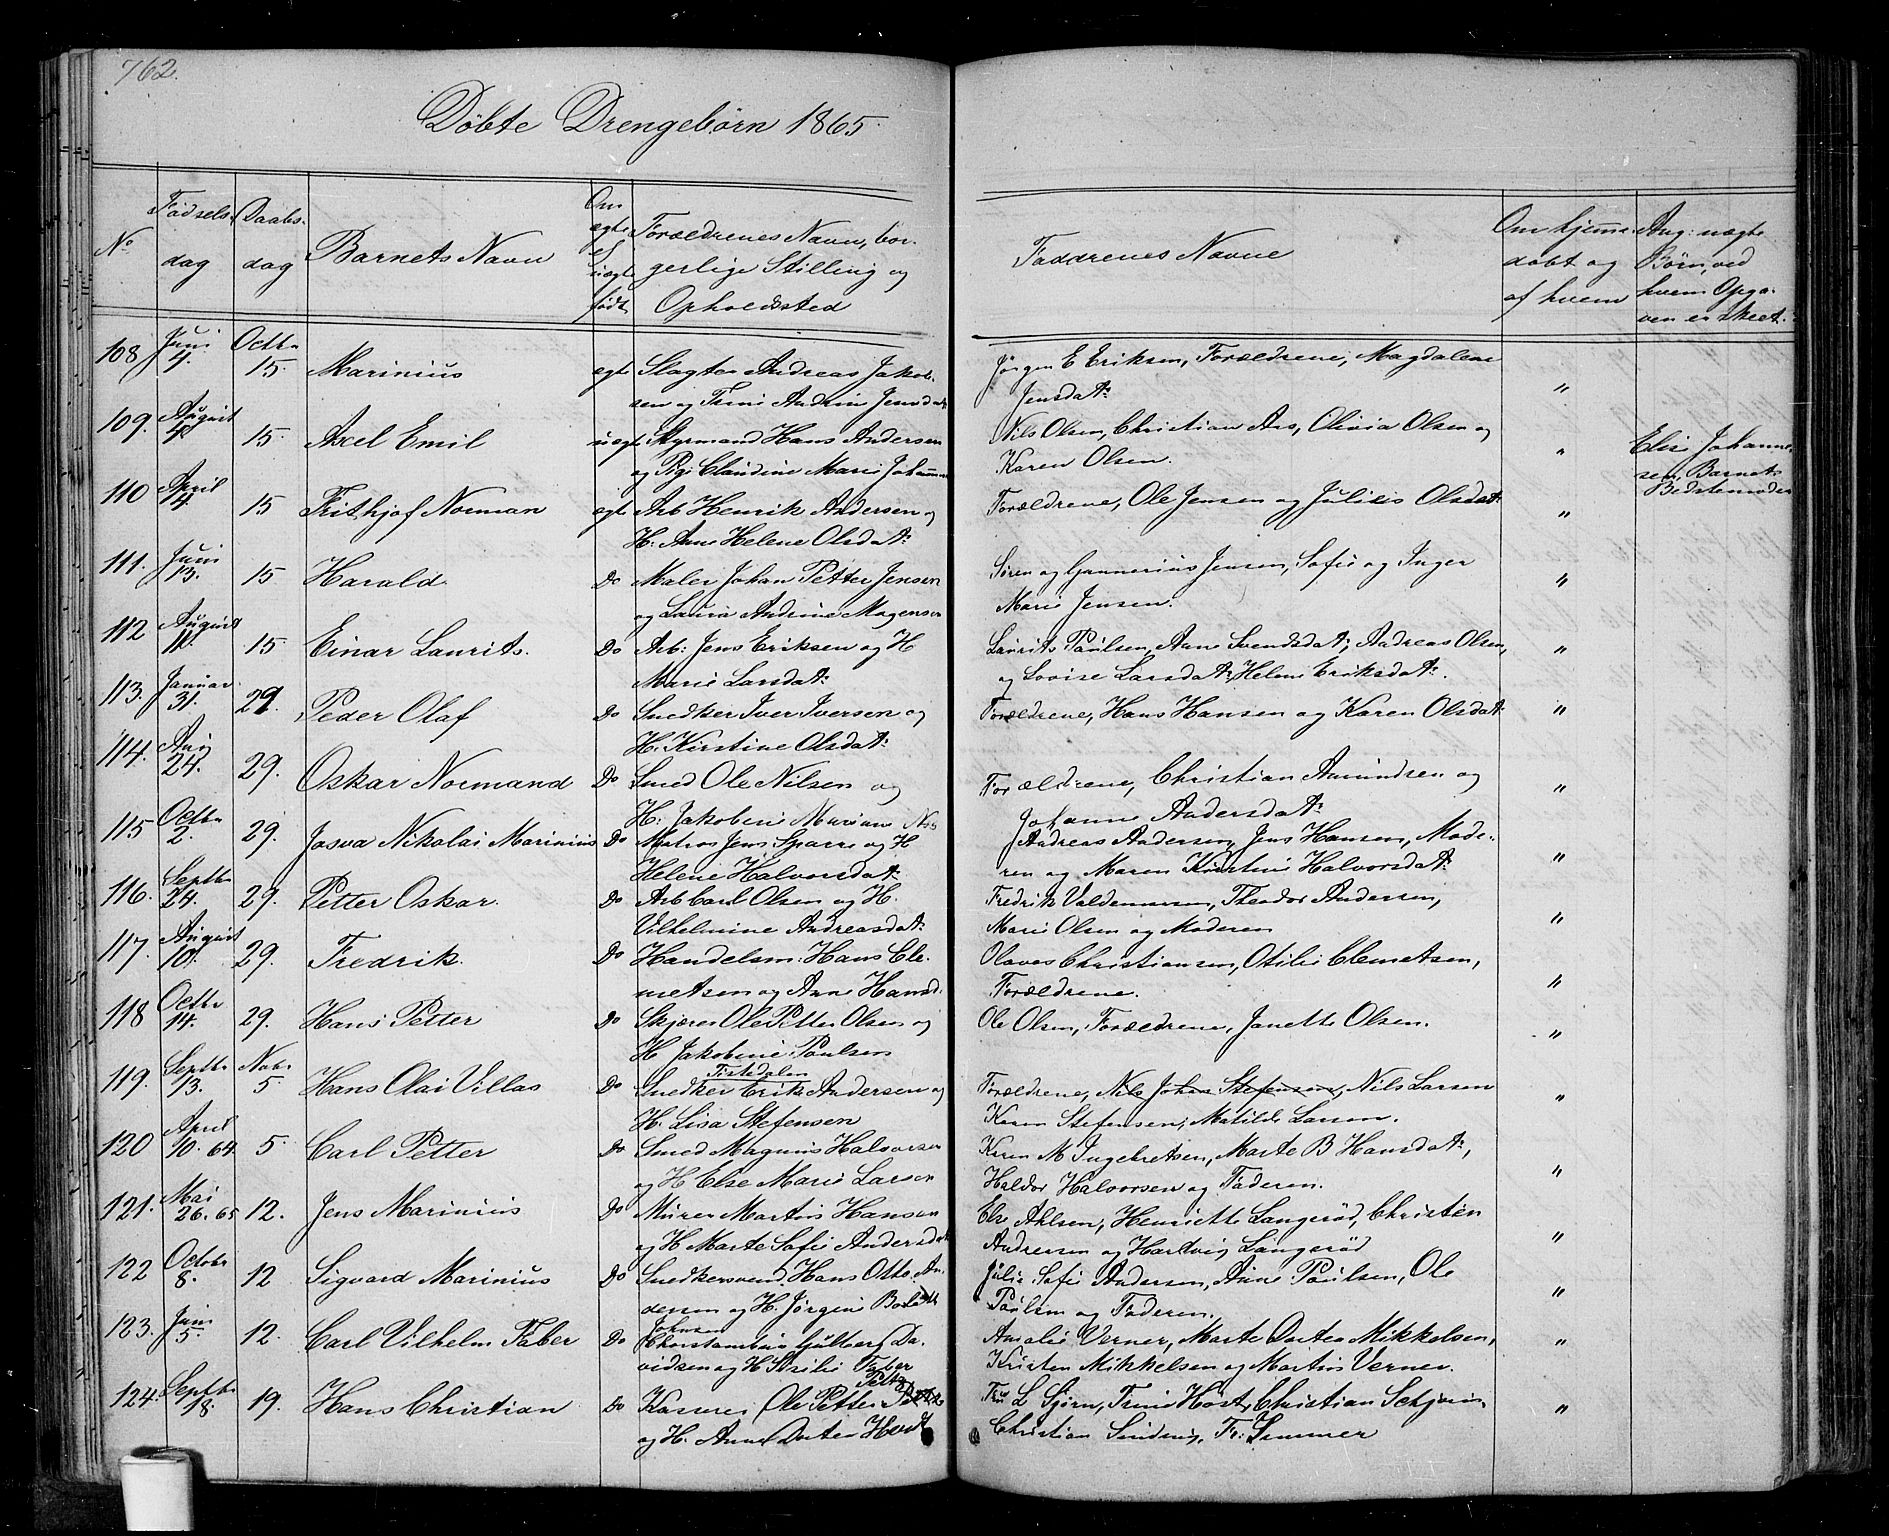 762.
Döbte Drengebörn 1865.
No
Födsels dag
Daabs dag
Barnets Navn
Om ægte el uægte födt
Forældrenes Navn, bor-
gerlige Stilling og
Opholdssted
Faddrenes Navne
Om hjemme
döbt og
af hvem
Ang: uægte
Börn, ved
hvem Opga-
ven er skeet.
108 Juni 4. Octbr 15. Marinius ægte Slagter Andreas Jakob-
sen og Trine Andrine Jensdatr
Jörgen E Eriksen, Forældrene, Magdalene
Jensdatr "
109. August 15. Axel Emil uægte Styrmand Hans Andersen
og Pige Claudine Marie Johannesen
Nils Olsen, Christian Ars, Olivia Olsen og
Karen Olsen. "
Elise Johanne-
sen, Barnets
Bedstemoder
110 April 4. 15 Frithjof Norman ægte Arb Henrik Andersen og
H: Anne Helene Olsdatr
Forældrene, Ole Jensen og Julius Olsdatr "
111. Juni 13. 15 Harald Do Maler Johan Petter Jensen
og Laura Andrine Magensen
Sören og Gunnerius Jensen, Sofie og Inger
Marie Jensen. "
112 August 11. 15. Einar Laurits. Do Arb: Jens Eriksen og H
Marie Larsdatr
Laurits Paulsen, Anne Svendsdatr, Andreas Olsen,
og Lovise Larsdatr, Helene Eriksdatr. "
113. Januar 31. 29. Peder Olaf Do Snedker Iver Iversen og
H: Kirstine Olsdatr
Forældrene, Hans Hansen og Karen Olsdatr "
114. Aug 24. 29. Oskar Normand Do Smed Ole Nilsen og
H: Jakobine Mariane
Forældrene, Christian Amundsen og
Johanne Andersdatr "
115 Octbr 2 29. Josva Nikolai Marinius Do Matros Jens Sparre og H
Helene Halvorsdatr
Andreas Andersen, Jens Hansen, Mode-
ren og Maren Kirstine Halvorsdatr "
116. Septbr 24. 29. Petter Oskar. Do Arb Carl Olsen og H.
Vilhelmine Andreasdatr
Fredrik Valdemarsen, Theodor Andersen,
Marie Olsen og Moderen "
117. August 10. 29. Fredrik. Do Handelsm: Hans Cle-
metsen og Anne Hansd.
Olaves Christiansen, Otilie Clemetsen,
Forældrene. "
118 Octbr 14. 29. Hans Petter Do Skjærer Ole Petter Olsen og
H Jakobine Paulsen
Ole Olsen, Forældrene, Janette Olsen. "
119. Septbr 13. Nobr 5 Hans Olai Villas Do Snedker Erik Andersen og
Tistedalen
H. Lisa Stefensen
Forældrene, Nils Johan Stefensen, Nils Larsen
Karen Stefensen, Matilde Larsen. "
120 April 10. 64 5. Carl Petter Do Smed Magnus Halvorsen
og H Else Marie Larsen
Karen M Ingebretsen, Marte B Hansdatr,
Haldor Halvorsen og Faderen. "
121. Mai 26. 65 12. Jens Marinius Do Murer Martin Hansen
og H Marte Sofie Andersdatr
Else Ahlsen, Henriette Langeröd, Christen
Andersen og Hartvig Langeröd "
122 Octobr 8. 12 Sigvard Marinius Do Snedkersvend Hans Otto An-
dersen og H. Jörgine
Julie Sofie Andersen, Anne Paulsen, Ole
Paulsen og Faderen. "
123. Juni 5. 12. Carl Vilhelm Faber Do Davidsen og H Faber
Amalie Verner, Marte Dortea Mikkelsen,
Kristen Mikkelsen og Martin Verner. "
124. Septbr 18. 19. Hans Christian Do Kasserer Ole Petter
og H. Anne Dortea
Fru L Sjörn, Trine Höst, Christian
Christian Sinding, Fr: Semmer "